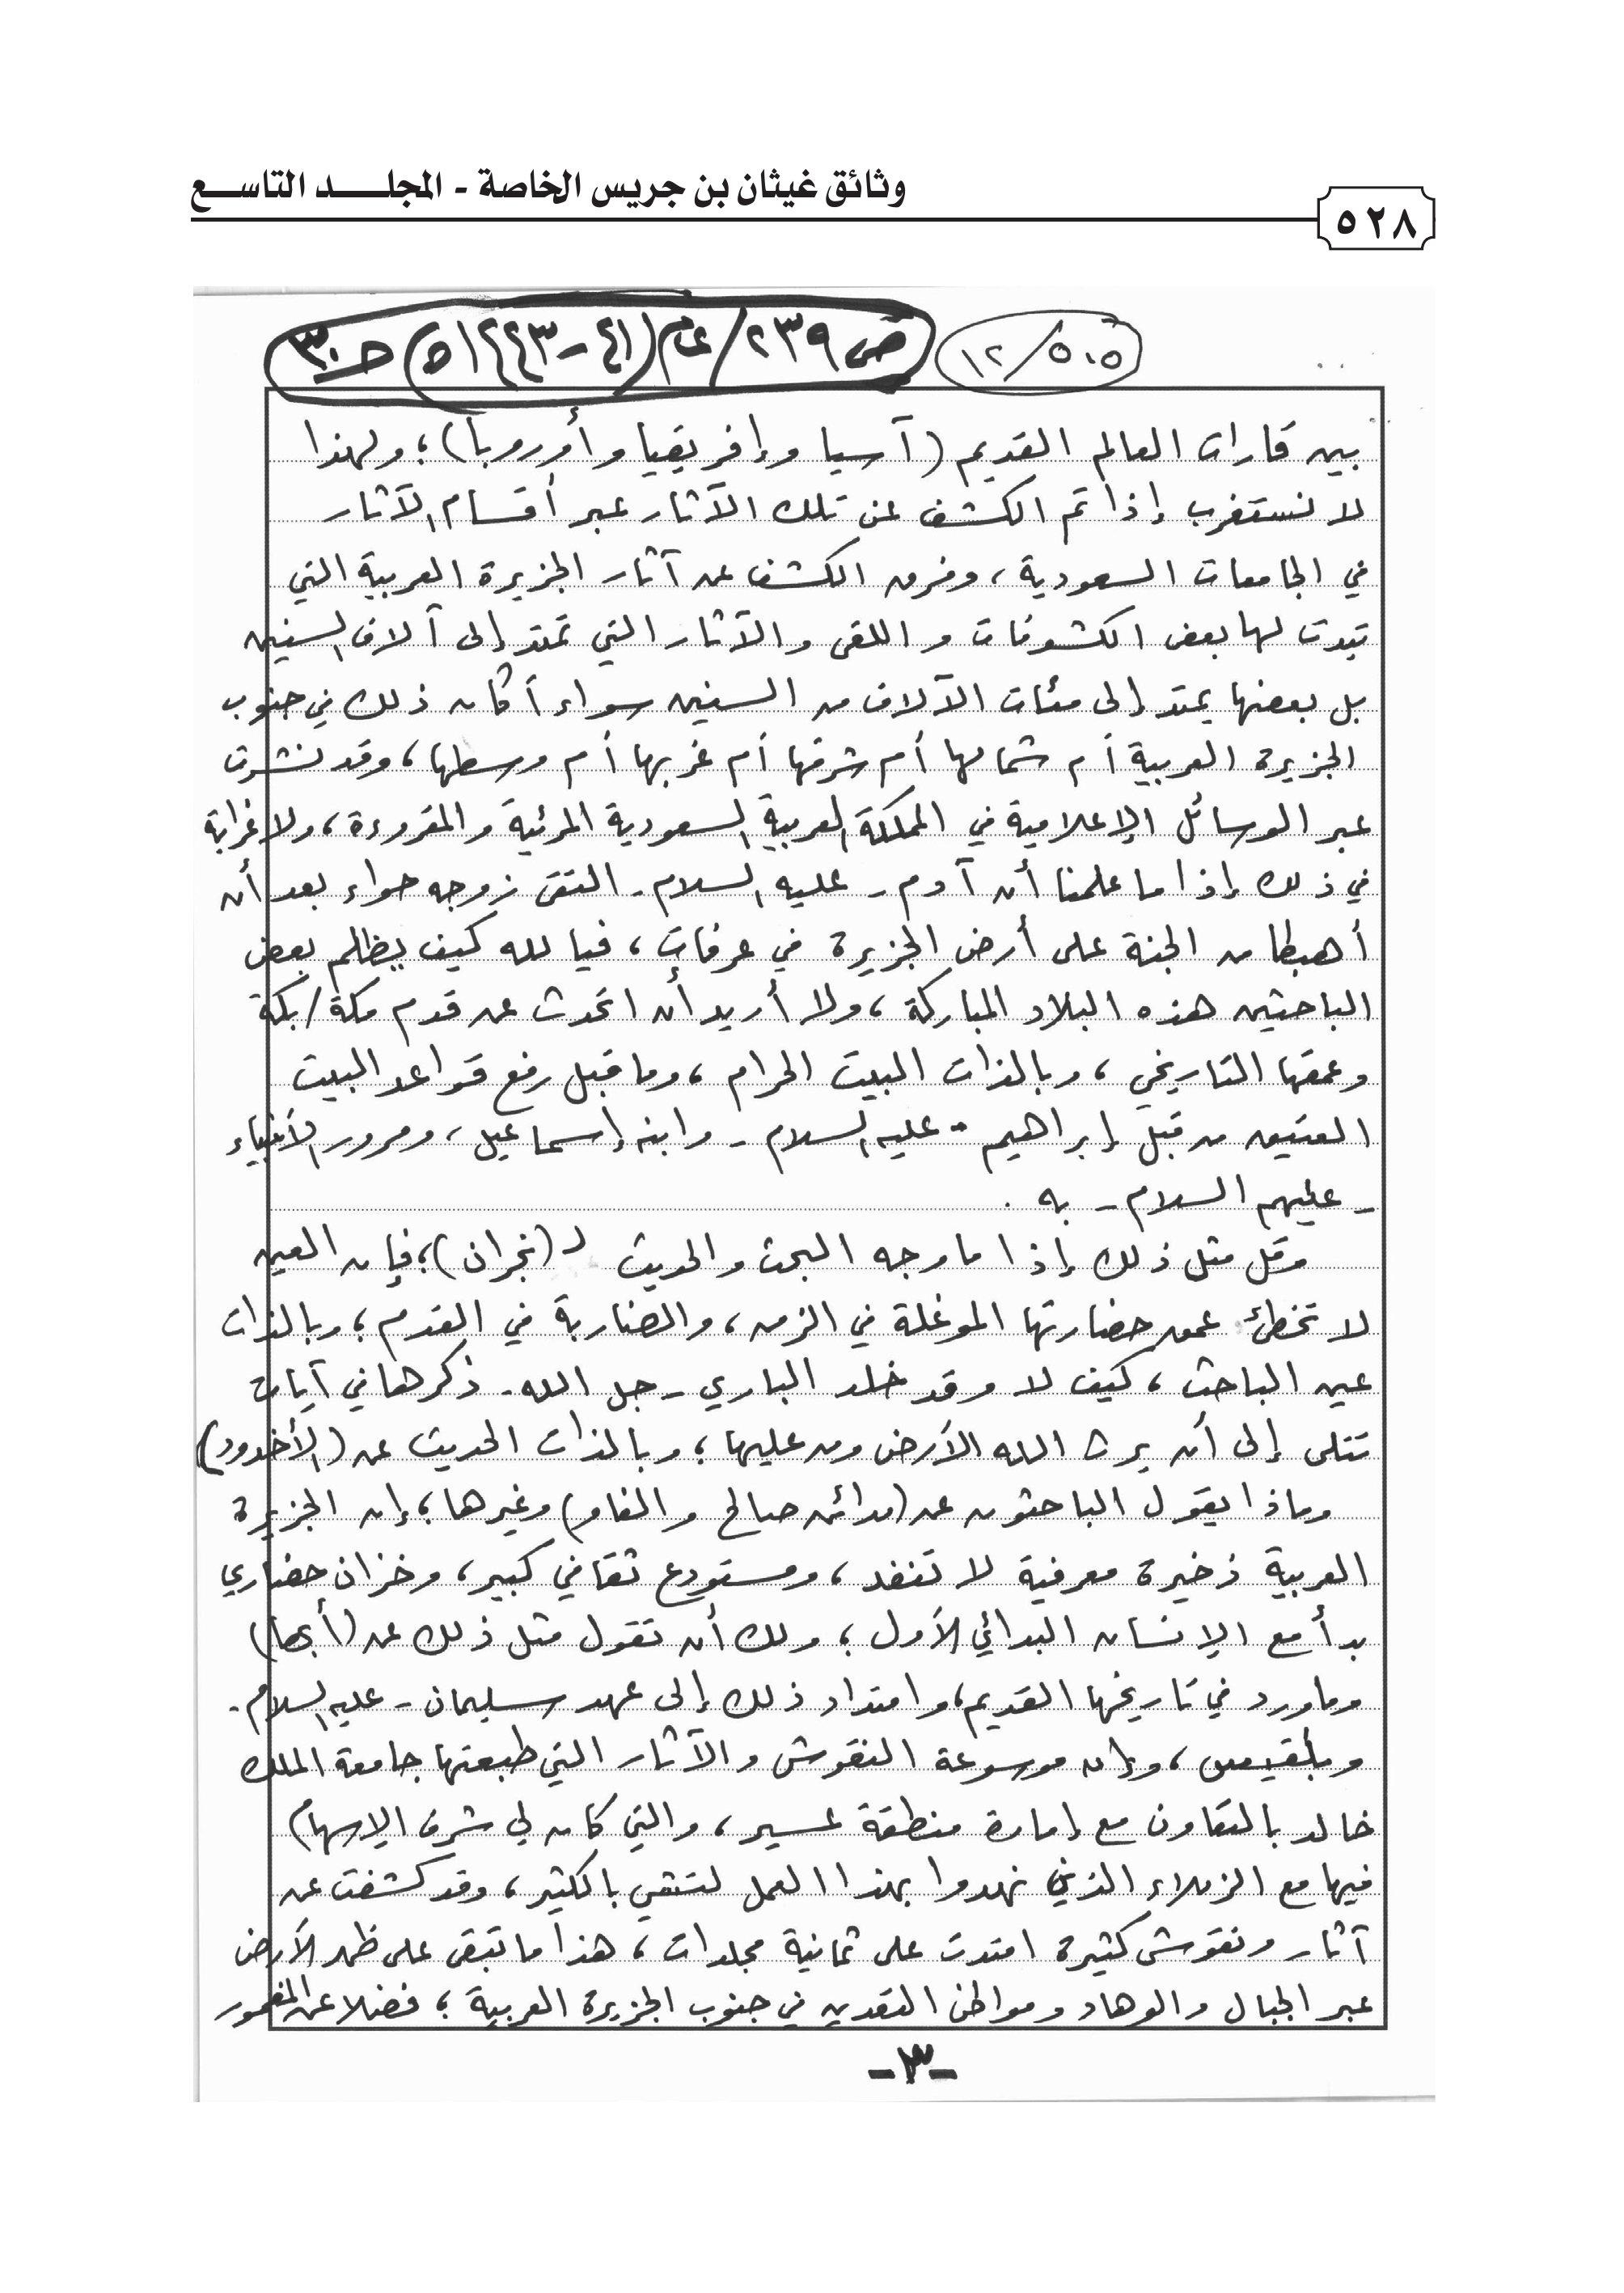 وثائق غيثان بن جريس الخاصة - المجلـــد التاســـع
٥٢٨
٥٠٥/١٢
ص ٢٣٩/عام (٤١-١٤٤٣هـ) حـ٣٠
بين قارات العالم القديم (آسيا وإفريقيا وأوروبا)؛ ولهذا
لا نستغرب إذا تم الكشف عن تلك الآثار عبر أقسام الآثار
في الجامعات السعودية، وفرق الكشف عن آثار الجزيرة العربية التي
تبدت لها بعض الكشوفات واللقى والآثار التي تمتد إلى آلاف السنين
بل بعضها يمتد إلى مئات الآلاف من السنين سواء أكان ذلك في جنوب
الجزيرة العربية أم شمالها أم شرقها أم غربها أم وسطها، وقد نشرت
عبر الوسائل الإعلامية في المملكة العربية السعودية المرئية والمقروءة، ولا غرابة
في ذلك إذا ما علمنا أن آدم - عليه السلام - التقى زوجه حواء بعد أن
أهبطا من الجنة على أرض الجزيرة في عرفات، فيا لله كيف يظلم بعض
الباحثين هذه البلاد المباركة، ولا أريد أن اتحدث عن قدم مكة/بكة
وعمقها التاريخي، وبالذات البيت الحرام، وما قبل رفع قواعد البيت
العتيق من قبل إبراهيم - عليه السلام - وابنه إسماعيل، ومرور الأنبياء
- عليهم السلام - به .
وقل مثل ذلك إذا ما وجه البحث والحديث لـ (نجران)؛ فإن العين
لا تخطئ عمق حضارتها الموغلة في الزمن، والضاربة في القدم؛ وبالذات
عين الباحث، كيف لا وقد خلد الباري - جل الله - ذكرها في آيات
تتلى إلى أن يرث الله الأرض ومن عليها؛ وبالذات الحديث عن (الأخدود)
وماذا يقول الباحثون عن (مدائن صالح والفاو) وغيرها؛ إن الجزيرة
العربية ذخيرة معرفية لا تنفد، ومستودع ثقافي كبير، وخزان حضاري
بدأ مع الإنسان البدائي الأول؛ ولك أن تقول مثل ذلك عن (أبها)
وما ورد في تاريخها القديم، وامتداد ذلك إلى عهد سليمان - عليه السلام -
وبلقيس، وإن موسوعة النقوش والآثار التي طبعتها جامعة الملك
خالد بالتعاون مع إمارة منطقة عسير، والتي كان لي شرف الإسهام
فيها مع الزملاء الذين نهدوا بهذا العمل لتشي بالكثير، وقد كشفت عن
آثار ونقوش كثيرة امتدت على ثمانية مجلدات، هذا ما تبقى على ظهر الأرض
عبر الجبال والوهاد ومواطن التعدين في جنوب الجزيرة العربية؛ فضلا عن المغمور
-٣-